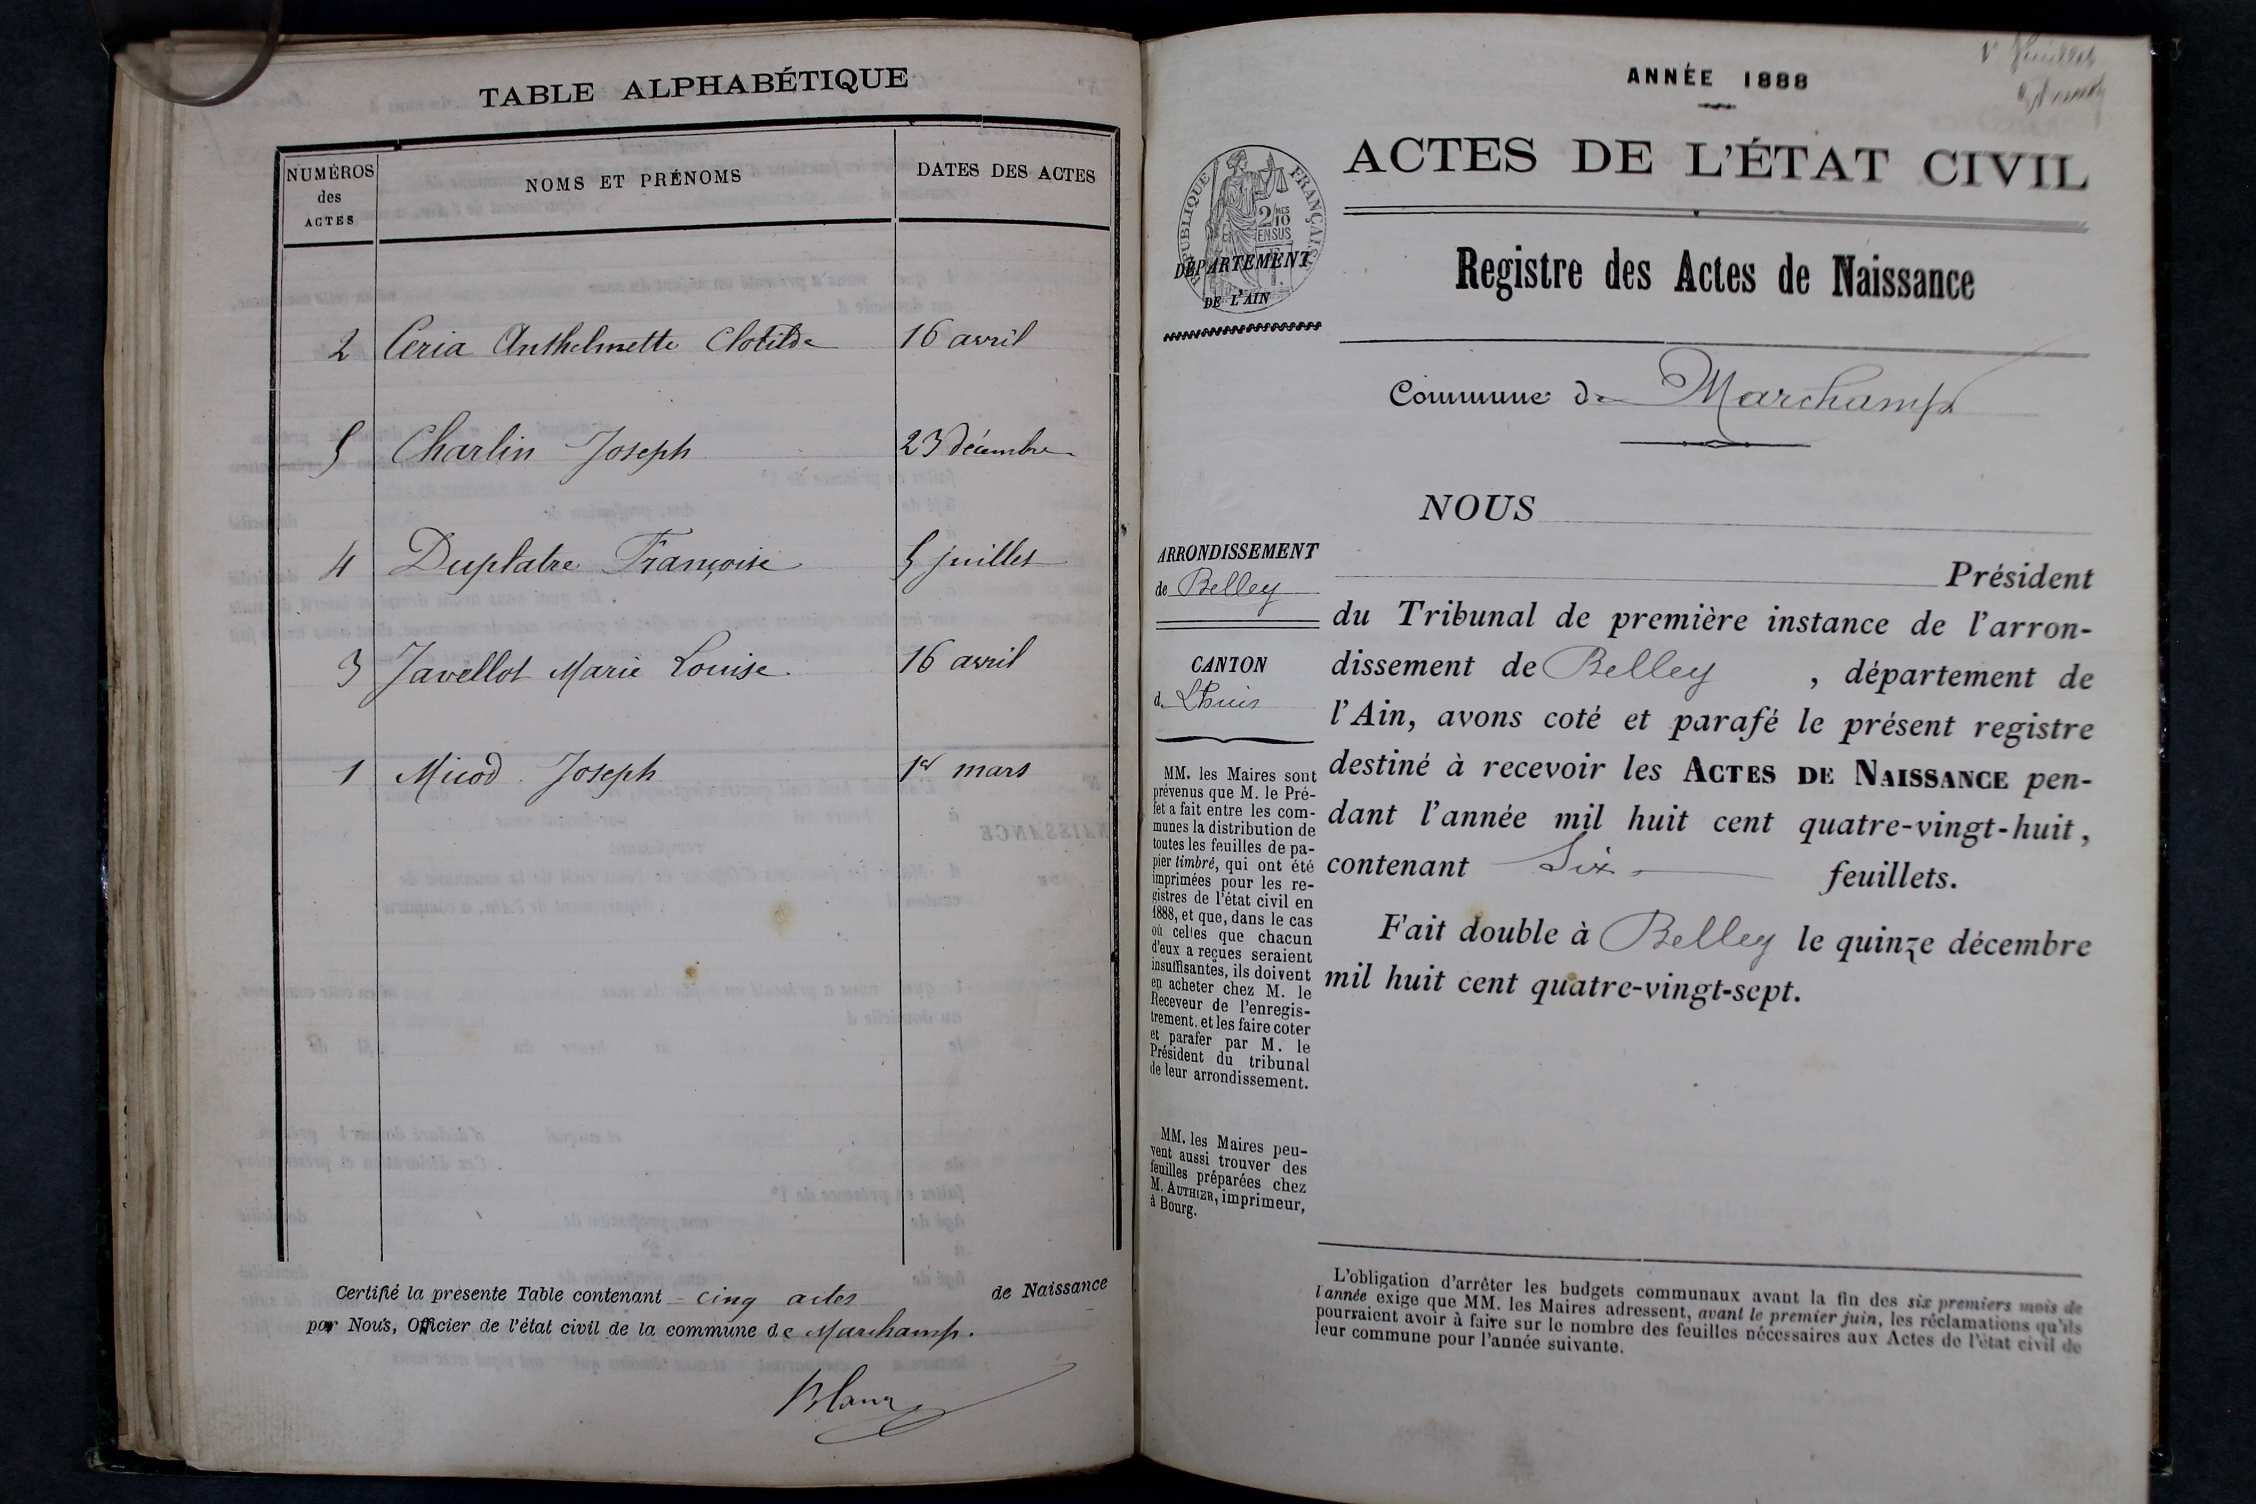 TABLE ALPHABÉTIQUE
NUMÉROS
des
ACTES
NOMS ET PRÉNOMS
DATES DES ACTES
2 Ceria Anthelmette Clotilde 16 avril
5 Charlin Joseph 23 décembre
4 Duplatre Françoise 5 juillet
3 Javellot Marie Louise 16 avril
1 Micod Joseph 1er mars
Certifié la présente Table contenant cinq actes de Naissance
par Nous, Officier de l'état civil de la commune de Marchamp.
Blanc
ANNÉE 1888
1er feuillet
ACTES DE L'ÉTAT CIVIL
RÉPUBLIQUE FRANÇAISE
2/10MES
EN SUS
DÉPARTEMENT
DE L'AIN
Registre des Actes de Naissance
Commune de Marchamp
NOUS
Président
du Tribunal de première instance de l'arron-
dissement de Belley, département de
l'Ain, avons coté et parafé le présent registre
destiné à recevoir les ACTES DE NAISSANCE pen-
dant l'année mil huit cent quatre-vingt-huit,
contenant Six feuillets.
Fait double à Belley le quinze décembre
mil huit cent quatre-vingt-sept.
ARRONDISSEMENT
de Belley
CANTON
d. Lhuis
MM. les Maires sont
prévenus que M. le Pré-
fet a fait entre les com-
munes la distribution de
toutes les feuilles de pa-
pier timbré, qui ont été
imprimées pour les re-
gistres de l'état civil en
1888, et que, dans le cas
où celles que chacun
d'eux a reçues seraient
insuffisantes, ils doivent
en acheter chez M. le
Receveur de l'enregis-
trement, et les faire coter
et parafer par M. le
Président du tribunal
de leur arrondissement.
MM. les Maires peu-
vent aussi trouver des
feuilles préparées chez
M. AUTHIER, imprimeur,
à Bourg.
L'obligation d'arrêter les budgets communaux avant la fin des six premiers mois de
l'année exige que MM. les Maires adressent, avant le premier juin, les réclamations qu'ils
pourraient avoir à faire sur le nombre des feuilles nécessaires aux Actes de l'état civil de
leur commune pour l'année suivante.